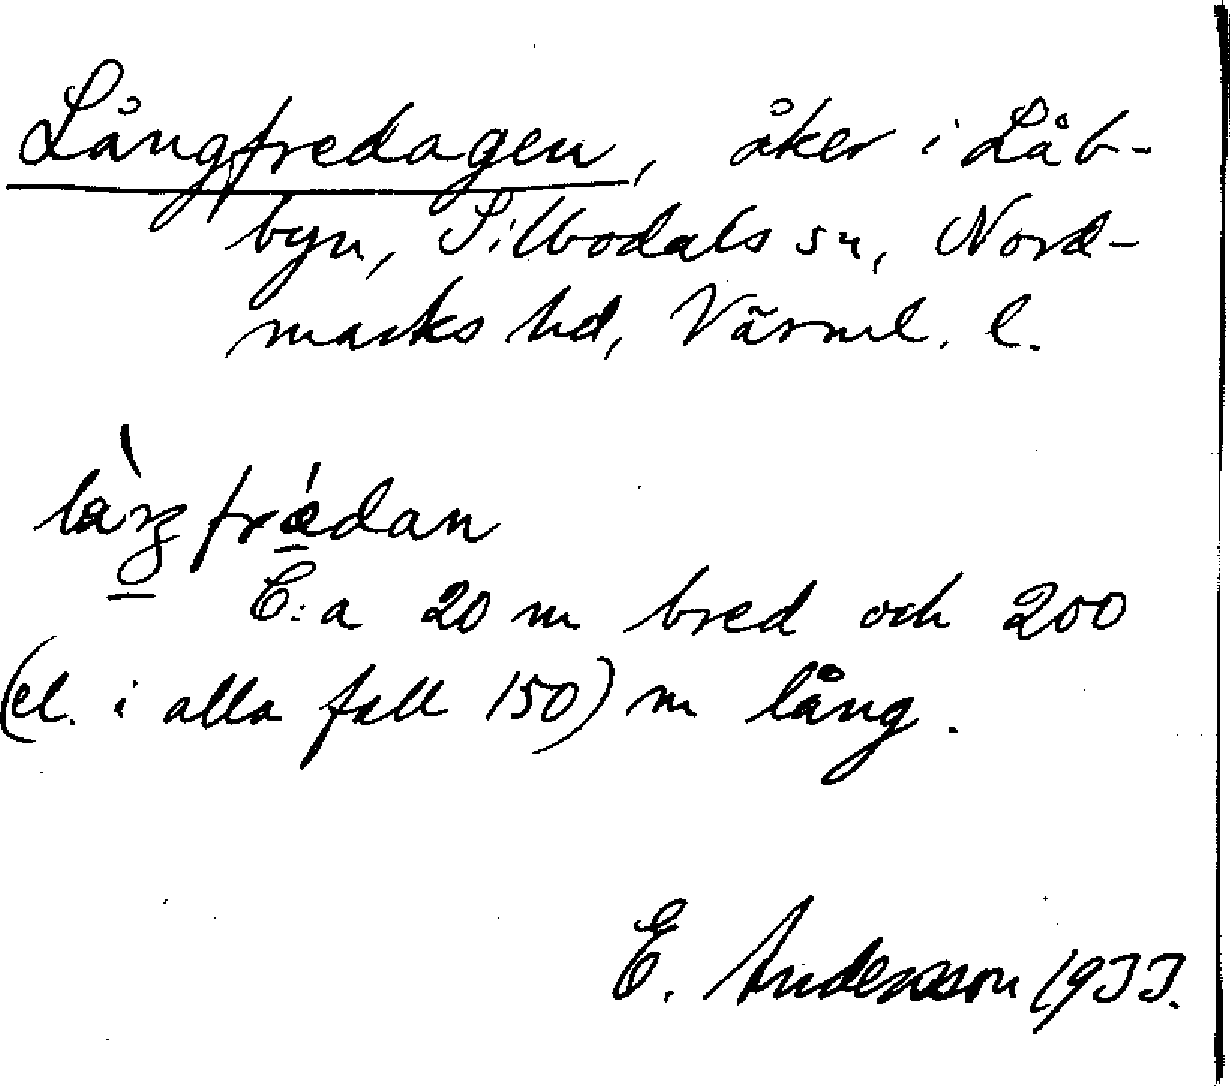 Långfredagen, åker i Låb-
byn, Silbodals sn, Nord-
marks hd, Värml. l.
C:a 20 m bred och 200
(el. i alla fall 150) m lång.
E. Andersson 1933.